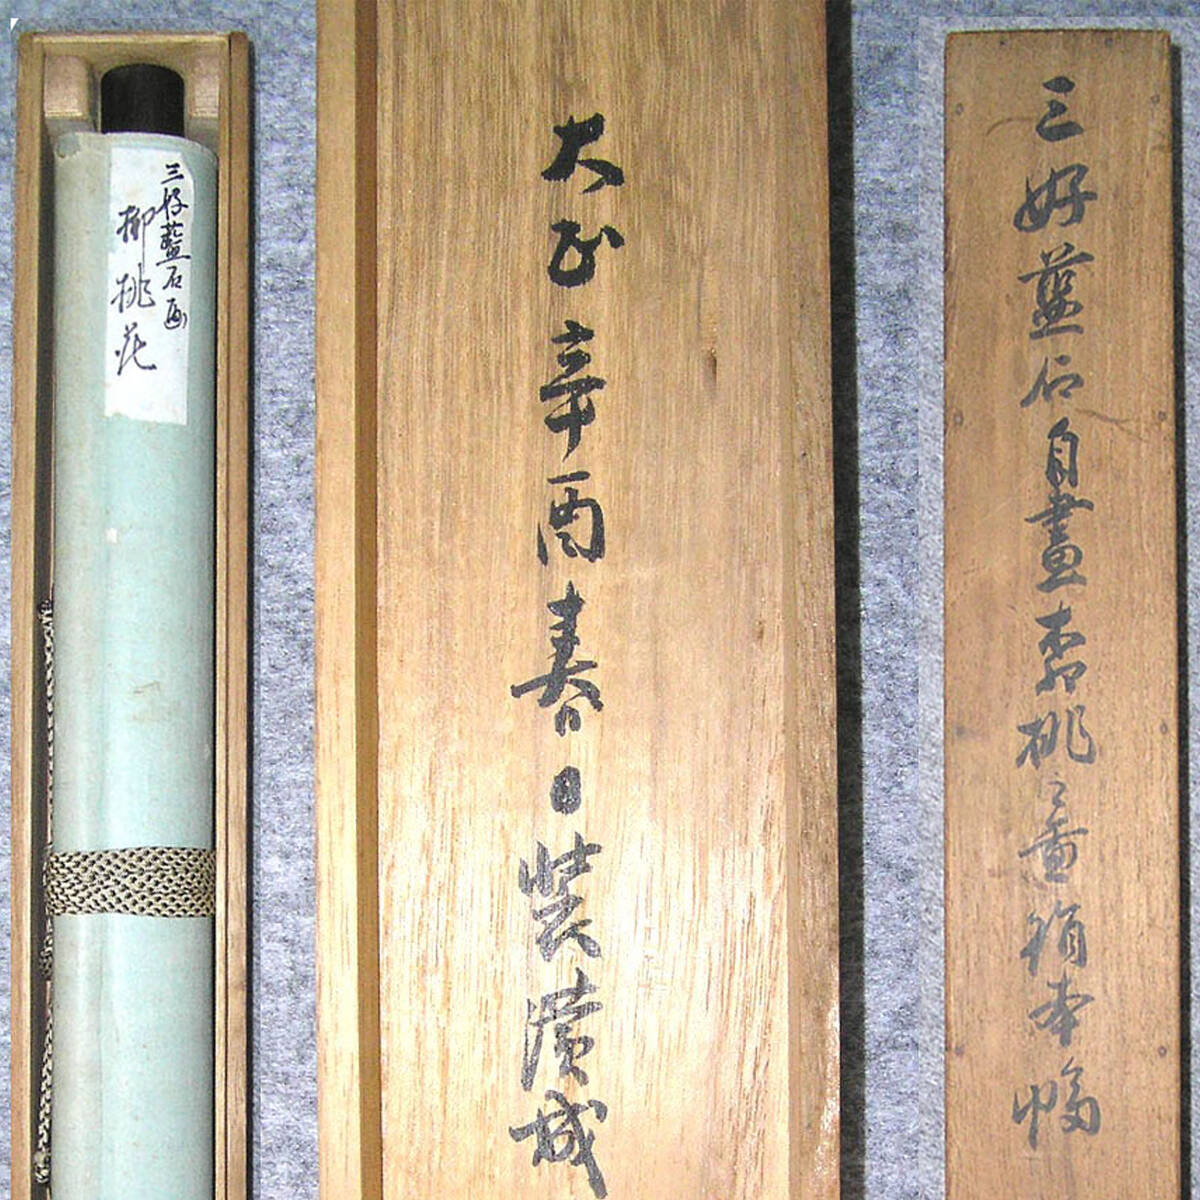 三好藍石画
柳桃花
大正辛酉春日装潢成
三好藍石自畫柳桃之畫絹本幅